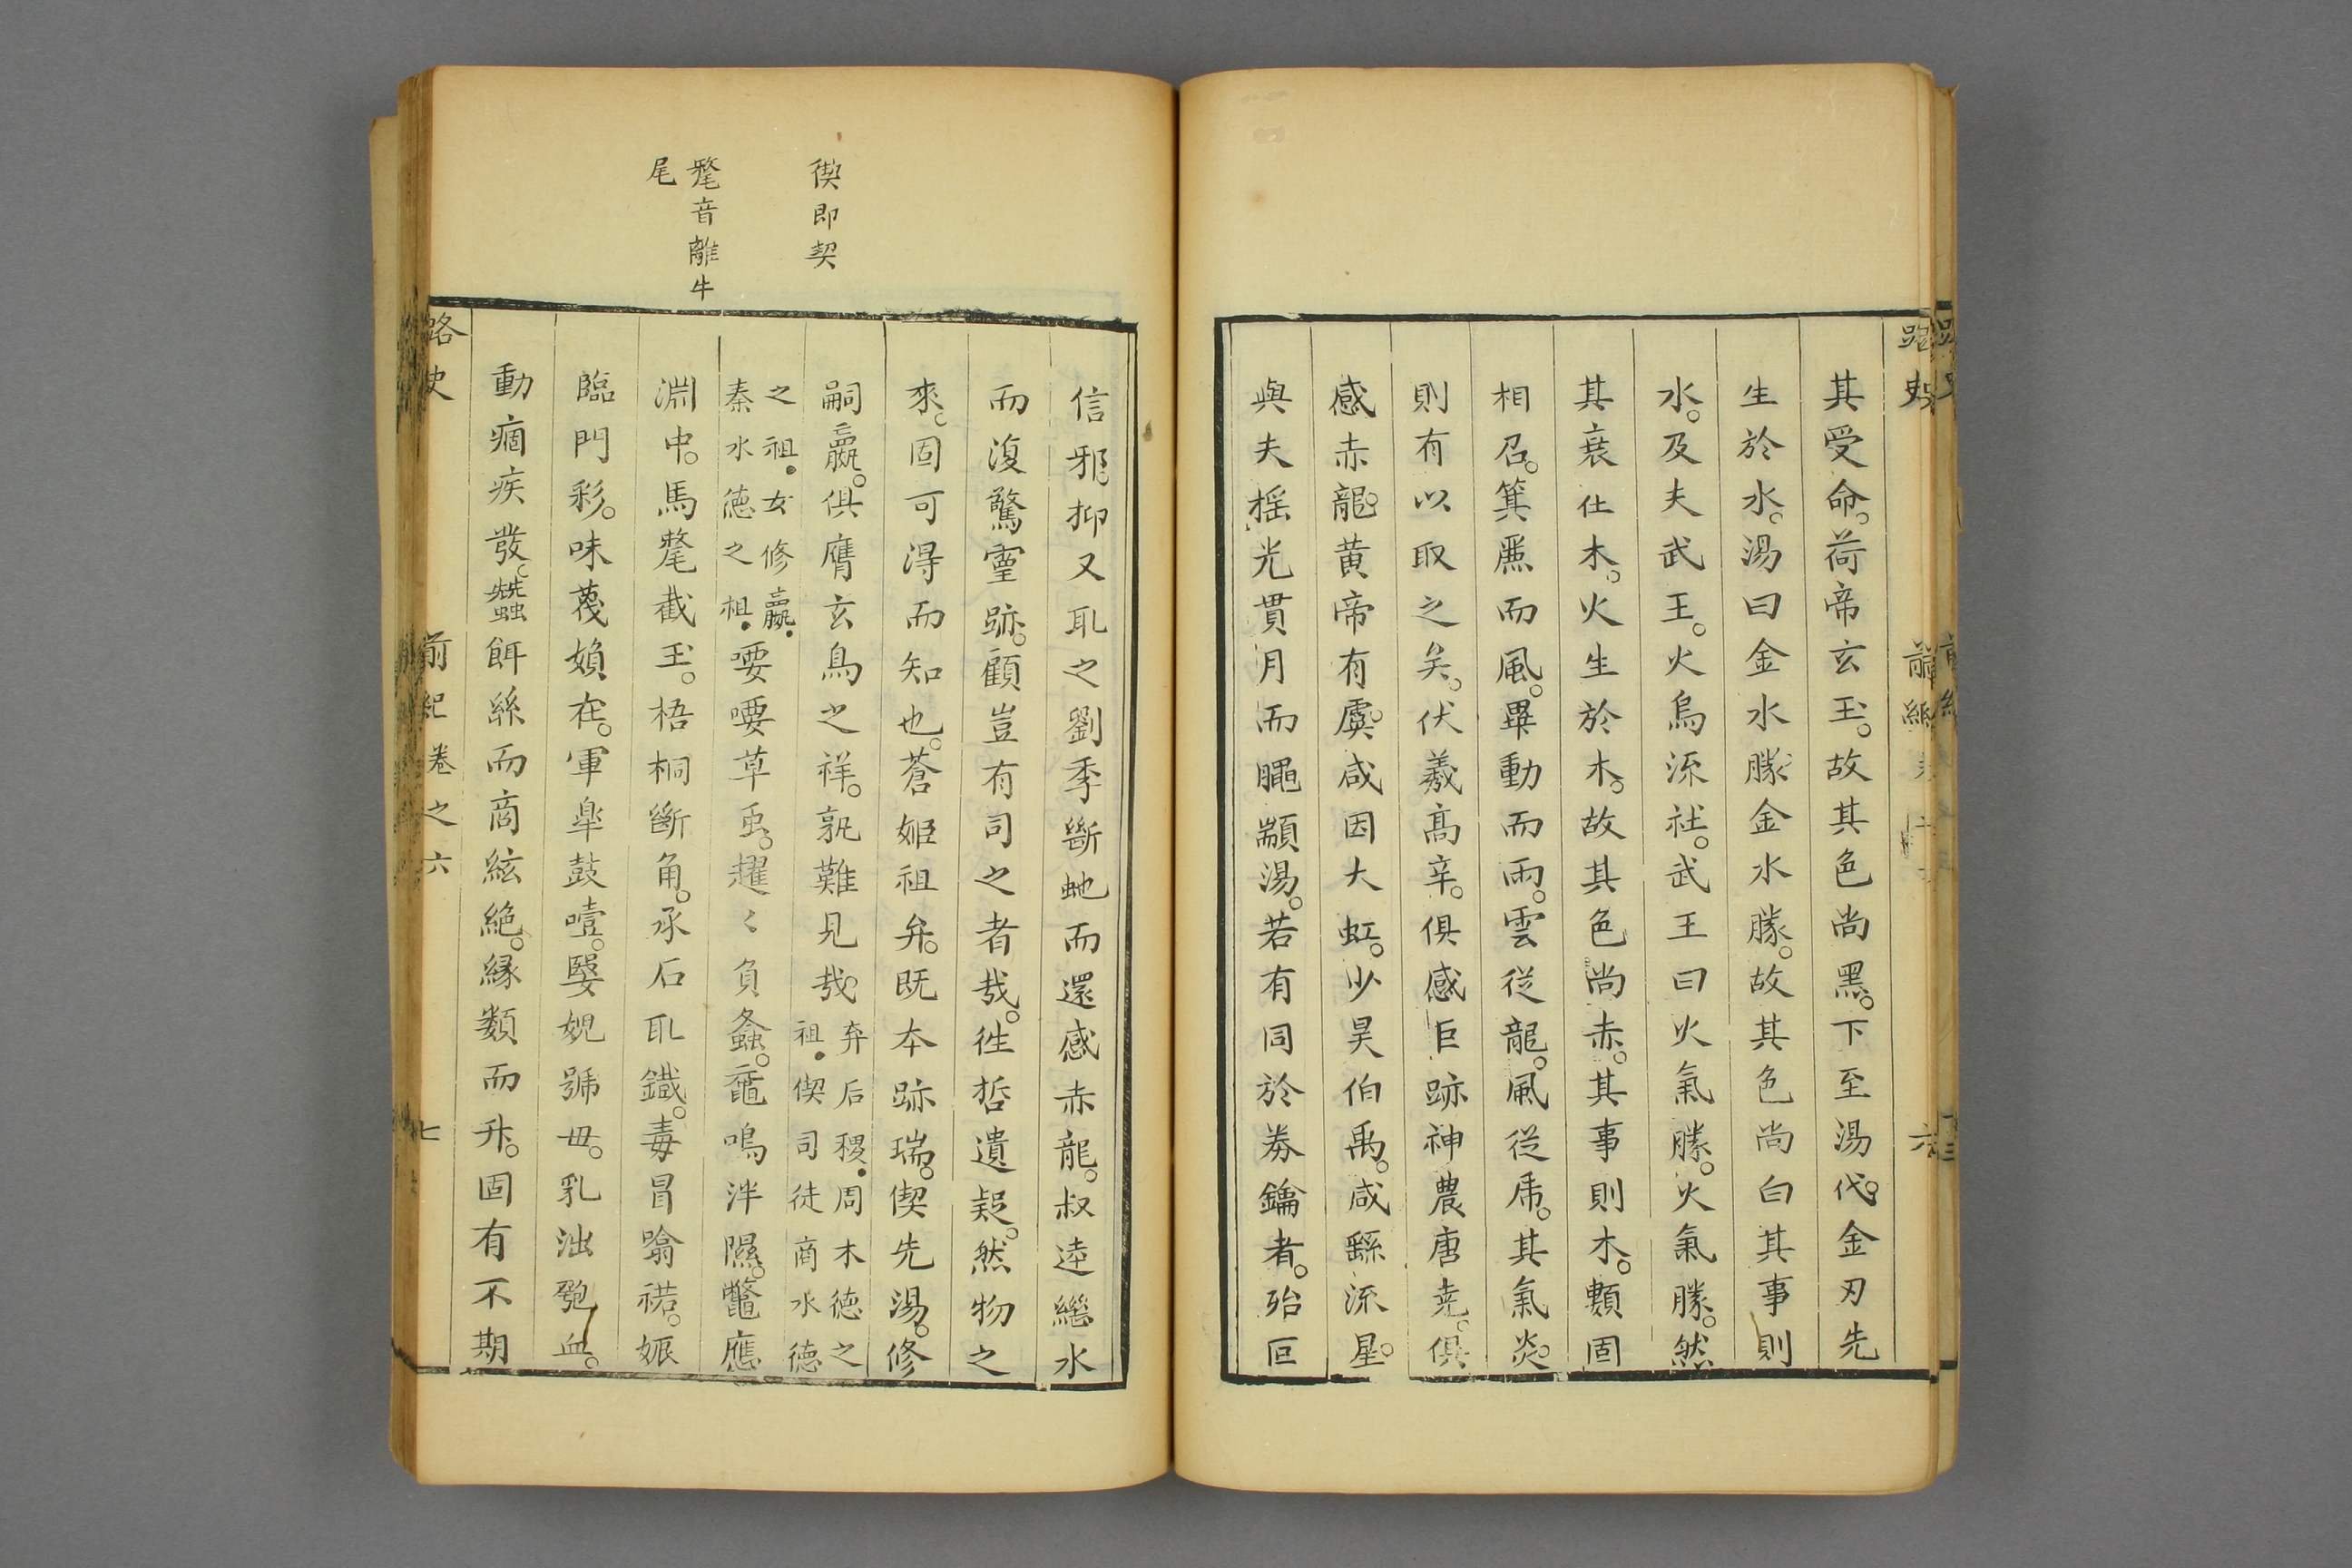 其受命荷帝玄玉故其色尚黑下至湯代金刃先
生於水湯曰金水勝金水勝故其色尚白其事則
水及夫武王火烏流社武王曰火氣勝火氣勝然
其衰仕木火生於木故其色尚赤其事則木類固
相召箕凞而風畢動而雨雲從龍風從虎其氣炎
則有以取之矣伏羲髙辛俱感巨跡神農唐尭俱
感赤龍黄帝有虞咸因大虹少昊伯禹咸繇流星
與夫揺光貫月而颛湯若有同於券鑰者殆叵
信邪抑又聀之劉季斷虵而還感赤龍叔逵繼水
而復驚靈跡顧豈有司之者哉徃哲遺疑然物之
來固可得而知也蒼姬祖弃既本跡瑞偰先湯修
嗣嬴俱膺玄鳥之祥孰難見哉
弃后稷周木德之
祖偰司徒商水德
之祖女修嬴
秦水德之祖
喓喓草虫趯〻負螽黿鳴泮隰鼈應
淵中馬氂截玉梧桐斷角承石取鐵毒冒噏䄳娠
臨門彩味蔑嬪在軍犀鼓噎嫛婗號毋乳泏血
動痼疾發蠶餌絲而商絃絶縁類而升固有不期
偰即契
氂音離牛
尾
路史
前紀卷之六
七